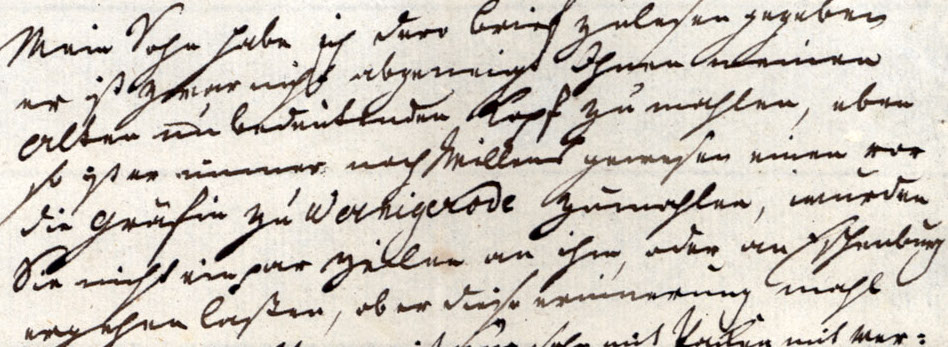 Mein Sohn habe ich dero brief zulesen gegeben
er ist zwar nicht abgeneigt Ihnen meinen
alten unbedeutenden Kopf zu mahlen, eben
so ist er immer noch Willens gewesen einen vor
die Gräfin zu Wernigerode zumahlen, wurden
Sie nicht ein par Zeilen an ihm, oder an Eschenburg
ergehen laßen, ob er diese erinnerung mahl
mit ver=